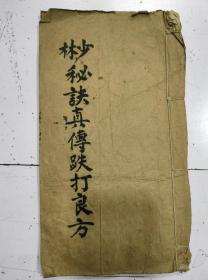 妙秘訣真傳跌打良方